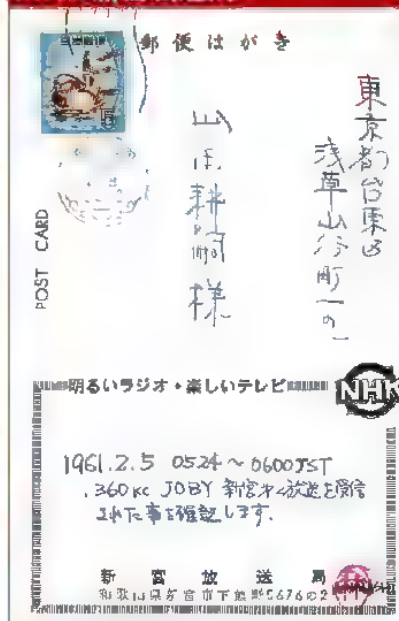 郵便はがき
東京都台東区
浅草山谷町一の一
山田耕嗣様
POST CARD
明るいラジオ・楽しいテレビ
NHK
1961.2.5 0524～0600JST
1360kc JOBY 新宮第2放送を受信
された事を確認します.
新宮放送局
和歌山県新宮市下熊野5676の2